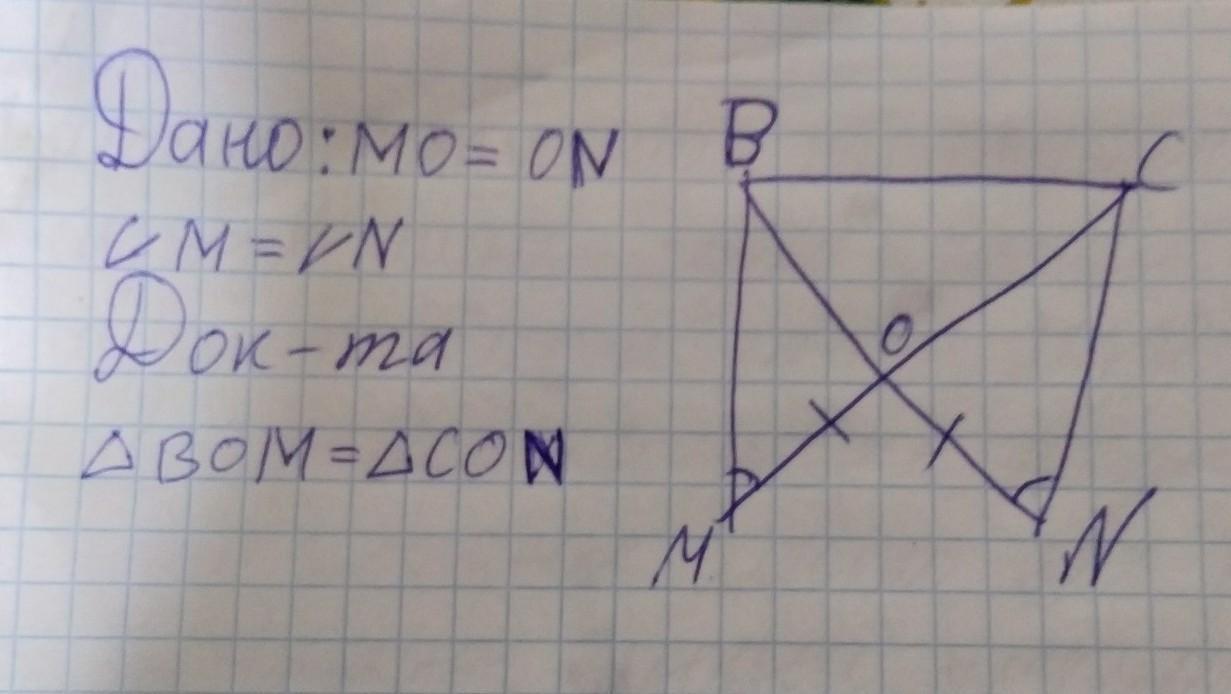 Дано: MO = ON
∠M = ∠N
Док-та
△BOM = △CON
B
C
O
M
N